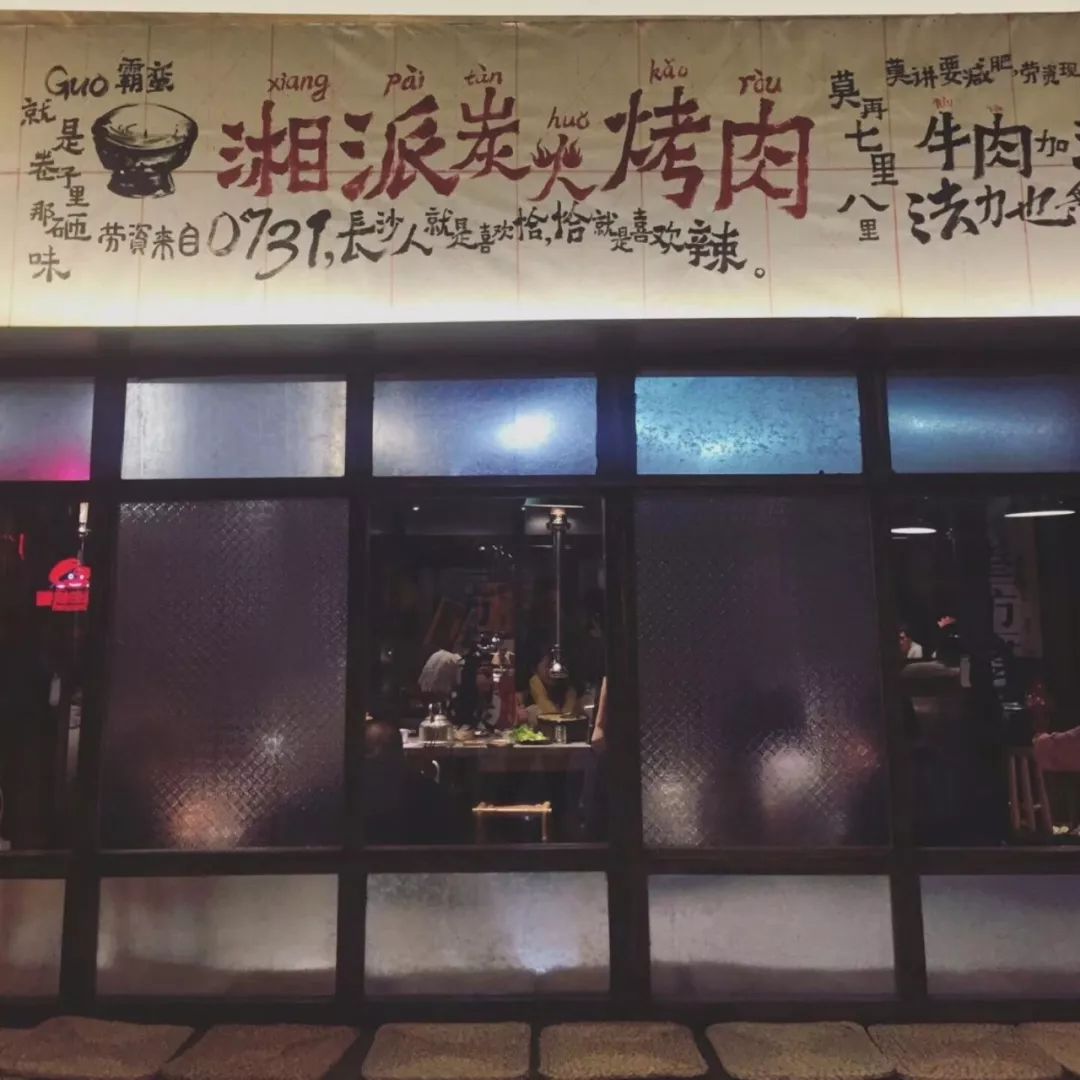 Guo霸蛮
就是巷子里那砸味
xiang pài tàn huǒ kǎo ròu
湘派炭火烤肉
劳資来自0731,長沙人就是喜欢恰,恰就是喜欢辣。
莫再七里八里
莫讲要减肥,劳资现
牛肉加
法力也